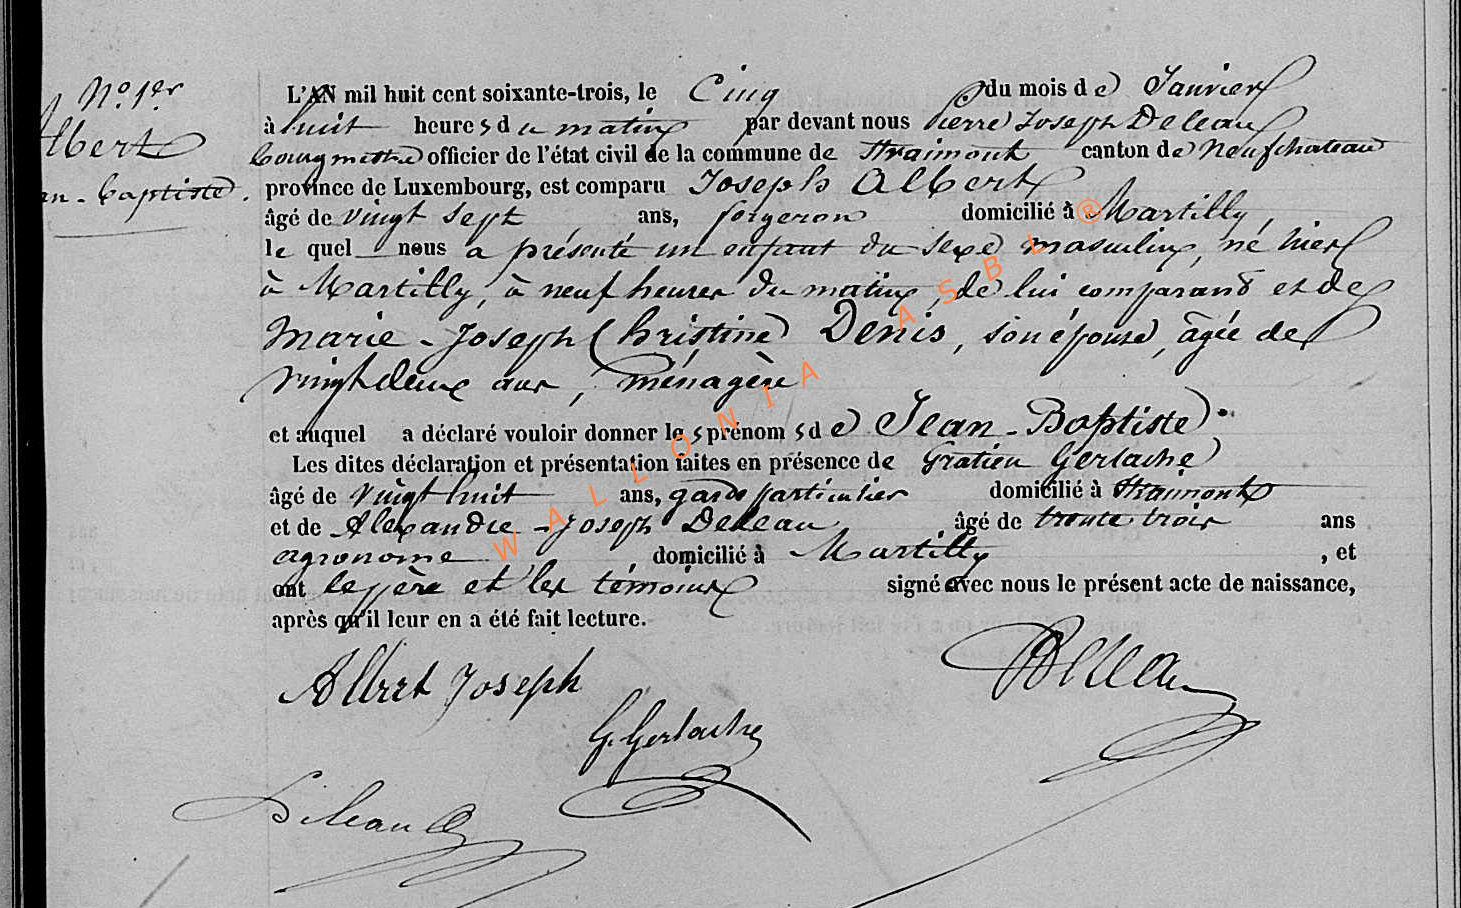 N° 1er
Albert
an-Baptiste.
L'AN mil huit cent soixante-trois, le Cinq du mois de Janvier
à huit heures du matin par devant nous Pierre Joseph Deleau
bourgmestre officier de l'état civil de la commune de Straimont canton de Neufchateau
province de Luxembourg, est comparu Joseph Albert
âgé de vingt sept ans, forgeron domicilié à Martilly,
le quel nous a présenté un enfant du sexe masculin, né hier
à Martilly, à neuf heures du matin, de lui comparant et de
Marie-Joseph Christine Denis, son épouse, âgée de
vingt deux ans, ménagère
et auquel a déclaré vouloir donner les prénoms de Jean-Baptiste.
Les dites déclaration et présentation faites en présence de Gratien Gerlache
âgé de vingt huit ans, garde particulier domicilié à Straimont
et de Alexandre-Joseph Deleau âgé de trente trois ans
agronome domicilié à Martilly, et
ont le père et les témoins signé avec nous le présent acte de naissance,
après qu'il leur en a été fait lecture.
Albert Joseph
Deleau
G. Gerlache
Deleau
WALLONIA ASBL ®